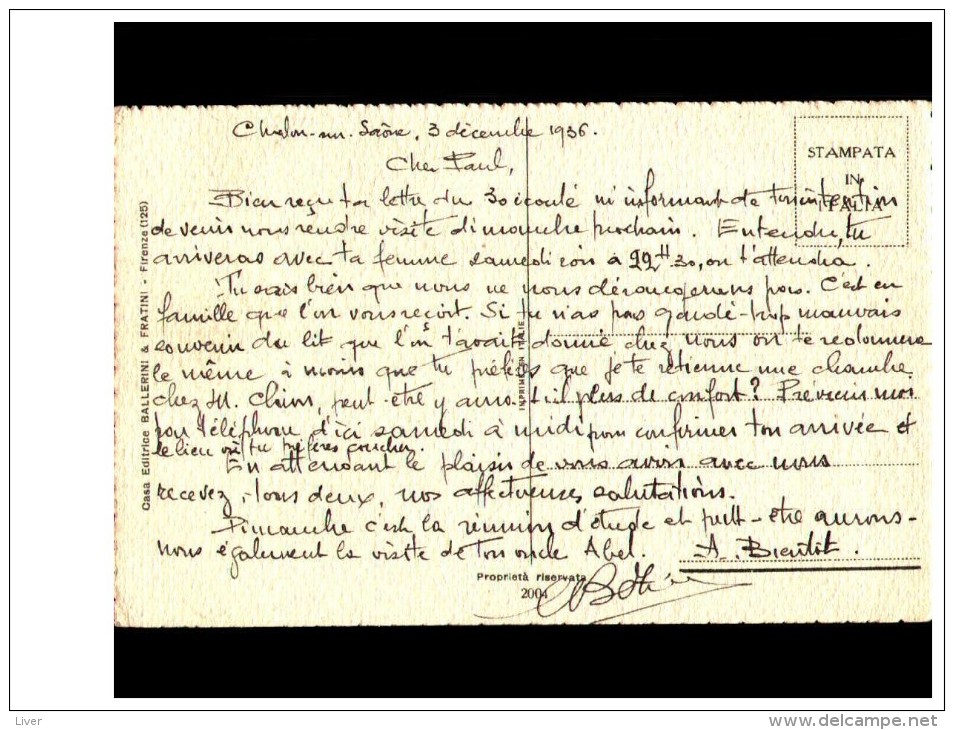 Chalon-sur-Saône, 3 décembre 1936.
STAMPATA
IN
ITALIA
Cher Paul,
Bien reçu ta lettre du 30 écoulé m'informant de ton intention
de venir nous rendre visite dimanche prochain. Entendu, tu
arriveras avec ta femme samedi soir à 22H30, on t'attendra.
Tu sais bien que nous ne nous dérangerons pas. C'est en
famille que l'on vous reçoit. Si tu n'as pas gardé trop mauvais
souvenir du lit que l'on t'avait donné chez nous on te redonnera
le même à moins que tu préfères que je te retienne une chambre
chez M. peut-être y aura-t-il plus de confort? Préviens moi
par téléphone d'ici samedi à midi pour confirmer ton arrivée et
le lieu où tu préfères coucher.
En attendant le plaisir de vous avoir avec nous
recevez, tous deux, nos affectueuses salutations.
Dimanche c'est la réunion d'étude et peut-être aurons-
nous également la visite de ton oncle Abel. A Bientôt.
Casa Editrice BALLERINI & FRATINI - Firenze (125)
IMPRIMÉ EN ITALIE
Proprietà riservata
2004
Liver
www.delcampe.net